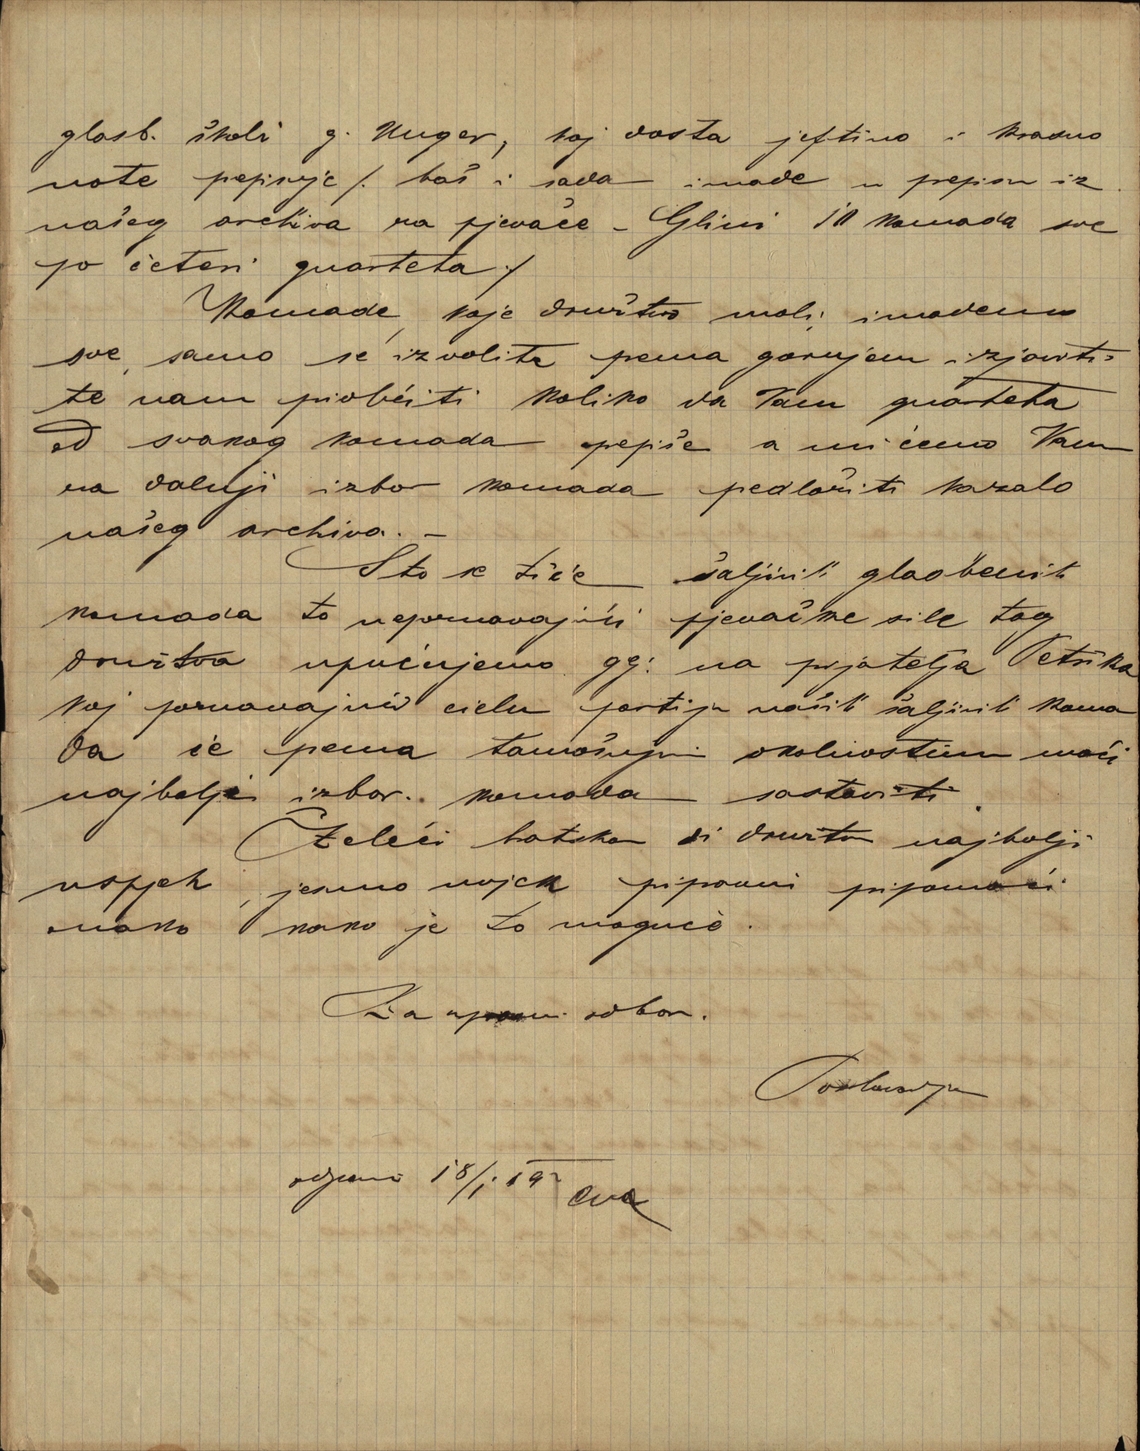 glasb. školi g. Unger, koj dosta jeftino i krasno
note prepisuje /. baš i sada imade u prepisu iz
našeg arhiva za pjevače - Glini 10 komada sve
po četeri quarteta ./
Komade, koje družtvo moli, imademo
sve, samo se izvolite prema gornjem izjaviti
te nam priobćiti koliko da Vam quarteta
od svakog komada prepiše a mi ćemo Vam
za daljnji izbor komada predložiti kazalo
našeg archiva. -
Što se tiče šaljivih glasbenih
komada to nepoznavajući pjevačke sile tog
družtva upućujemo gg. na prijatelja Petrika
koj poznavajući cielu partiju naših šaljivih koma
da će prema tamošnjim okolnostim moći
najbolji izbor komada sastaviti.
Želeći bratskom si družtvu najbolji
uspjeh, jesmo uvjek pripravni pripomoći
onako kako je to moguće.
Za upravni odbor.
18/1. 19